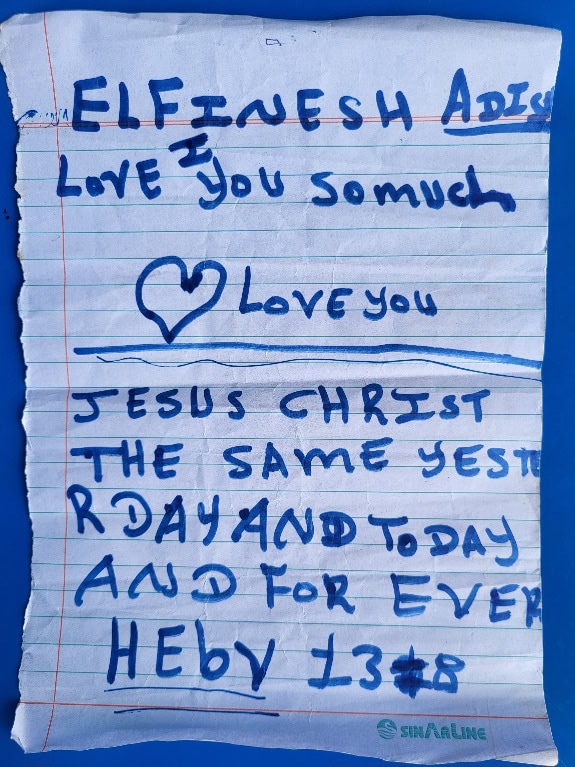 ELFINESH ADIS
I
LOVE YOU SO MUCH
LOVE YOU
JESUS CHRIST
THE SAME YESTE
RDAY AND TODAY
AND FOR EVER
HEbV 13:8
SINARLINE